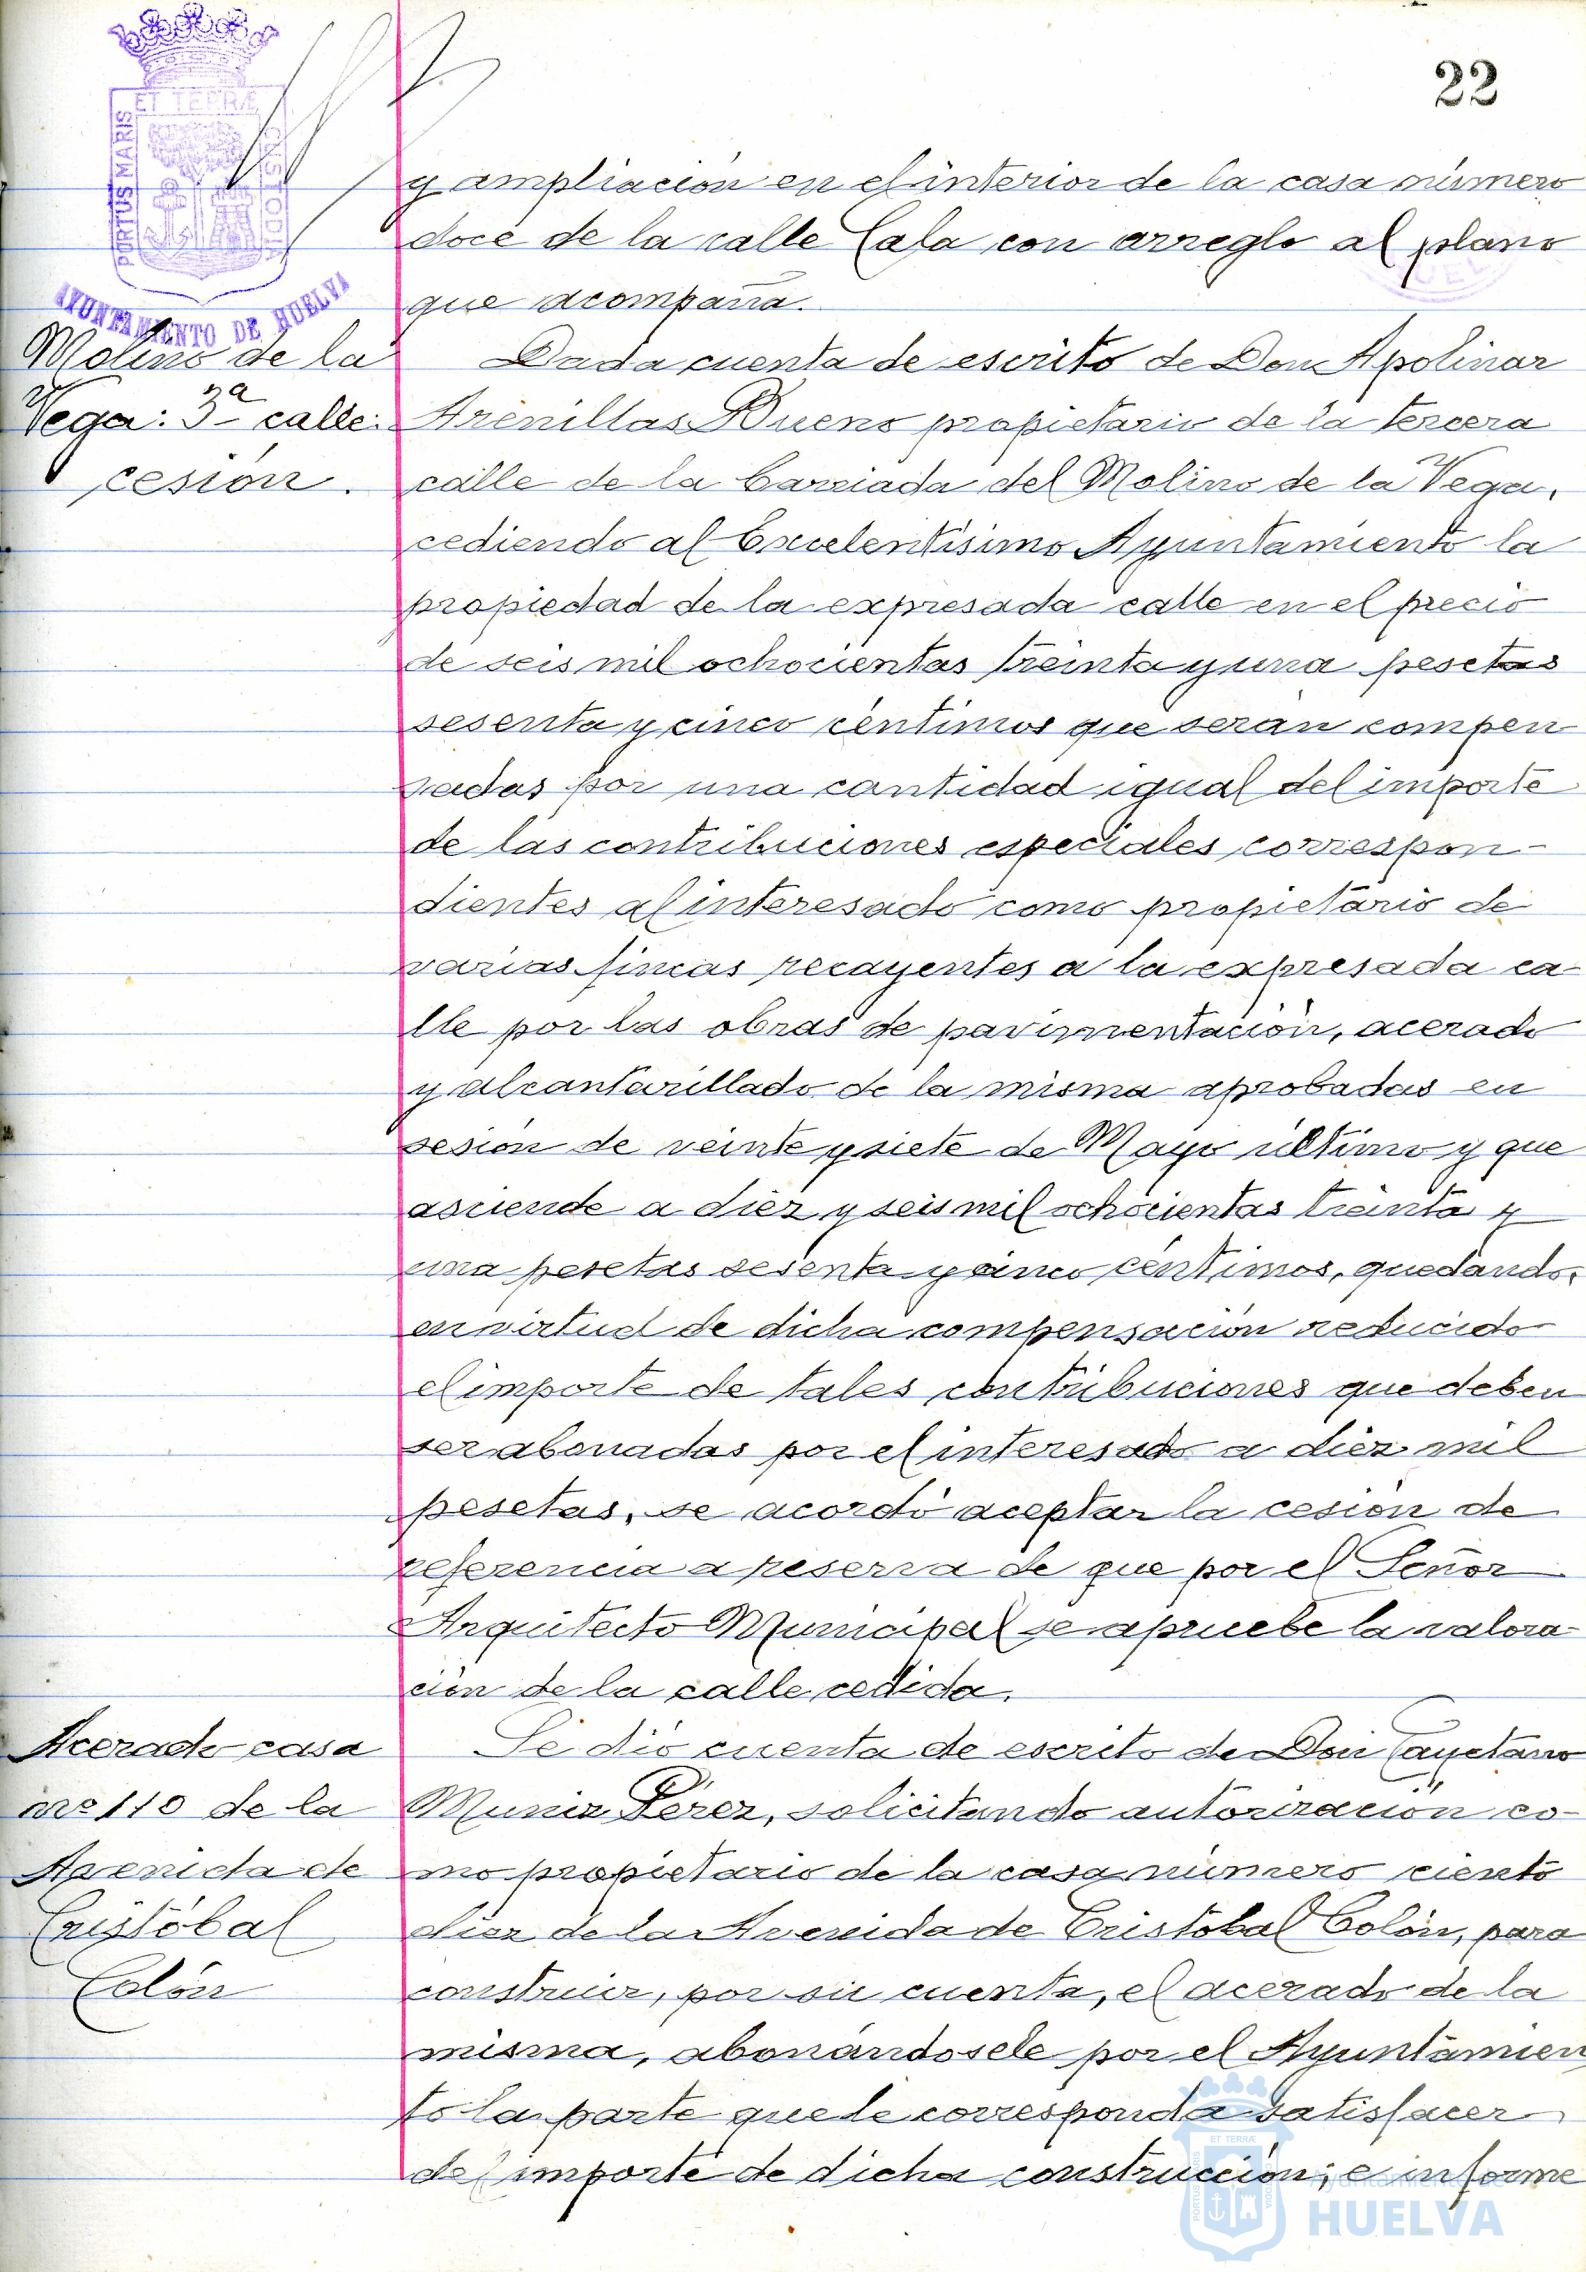 22
ET TERRÆ
PORTUS MARIS
CUSTODIA
AYUNTAMIENTO DE HUELVA
y ampliación en el interior de la casa número
doce de la calle Cala con arreglo al plano
que acompaña.
Molino de la
Vega: 3ª calle:
cesión.
Dada cuenta de escrito de Don Apolinar
Arenillas Bueno propietario de la tercera
calle de la barriada del Molino de la Vega,
cediendo al Excelentísimo Ayuntamiento la
propiedad de la expresada calle en el precio
de seis mil ochocientas treinta y una pesetas
sesenta y cinco céntimos que serán compen
sadas por una cantidad igual del importe
de las contribuciones especiales correspon-
dientes al interesado como propietario de
varias fincas recayentes a la expresada ca-
lle por las obras de pavimentación, acerado
y alcantarillado de la misma aprobadas en
sesión de veinte y siete de Mayo último y que
asciende a diez y seis mil ochocientas treinta y
una pesetas sesenta y cinco céntimos, quedando,
en virtud de dicha compensación reducido
el importe de tales contribuciones que deben
ser abonadas por el interesado a diez mil
pesetas, se acordó aceptar la cesión de
referencia a reserva de que por el Señor
Arquitecto Municipal se apruebe la valora-
ción de la calle cedida.
Acerado casa
nº 110 de la
Avenida de
Cristóbal
Colón
Se dió cuenta de escrito de Don Cayetano
Muniz Pérez, solicitando autorización co-
mo propietario de la casa número ciento
diez de la Avenida de Cristobal Colón, para
construir, por su cuenta, el acerado de la
misma, abonándosele por el Ayuntamien
to la parte que le corresponda satisfacer
del importe de dicha construcción; e informe
Ayuntamiento de
HUELVA